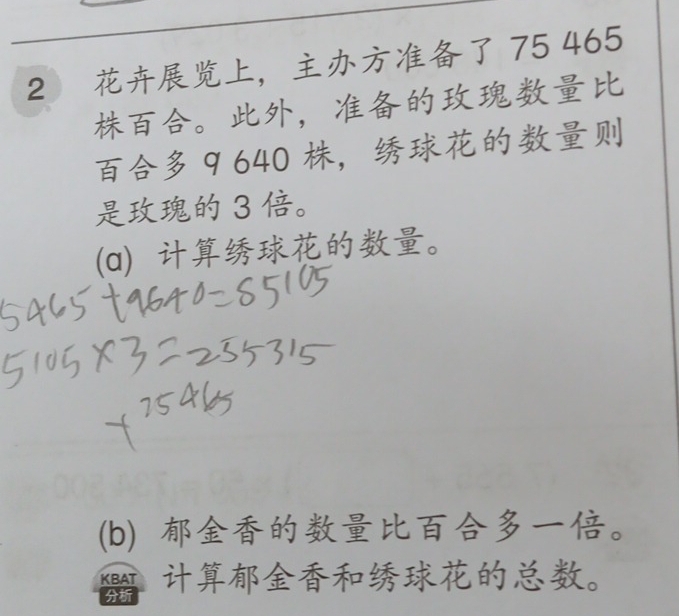 2 花卉展览上，主办方准备了 75 465
株百合。此外，准备的玫瑰数量比
百合多 9 640 株，绣球花的数量则
是玫瑰的 3 倍。
(a) 计算绣球花的数量。
5465+9640=85105
5105×3=255315
+75465
(b) 郁金香的数量比百合多一倍。
KBAT 计算郁金香和绣球花的总数。
分析